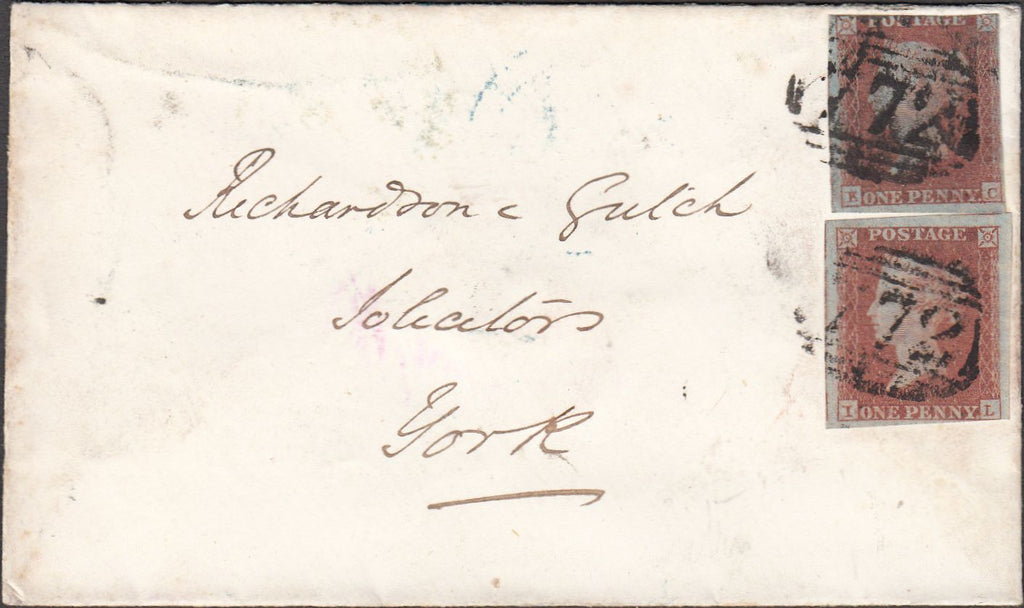 POSTAGE
E ONE PENNY C
POSTAGE
I ONE PENNY L
Richardson & Gulch
Solicitors
York